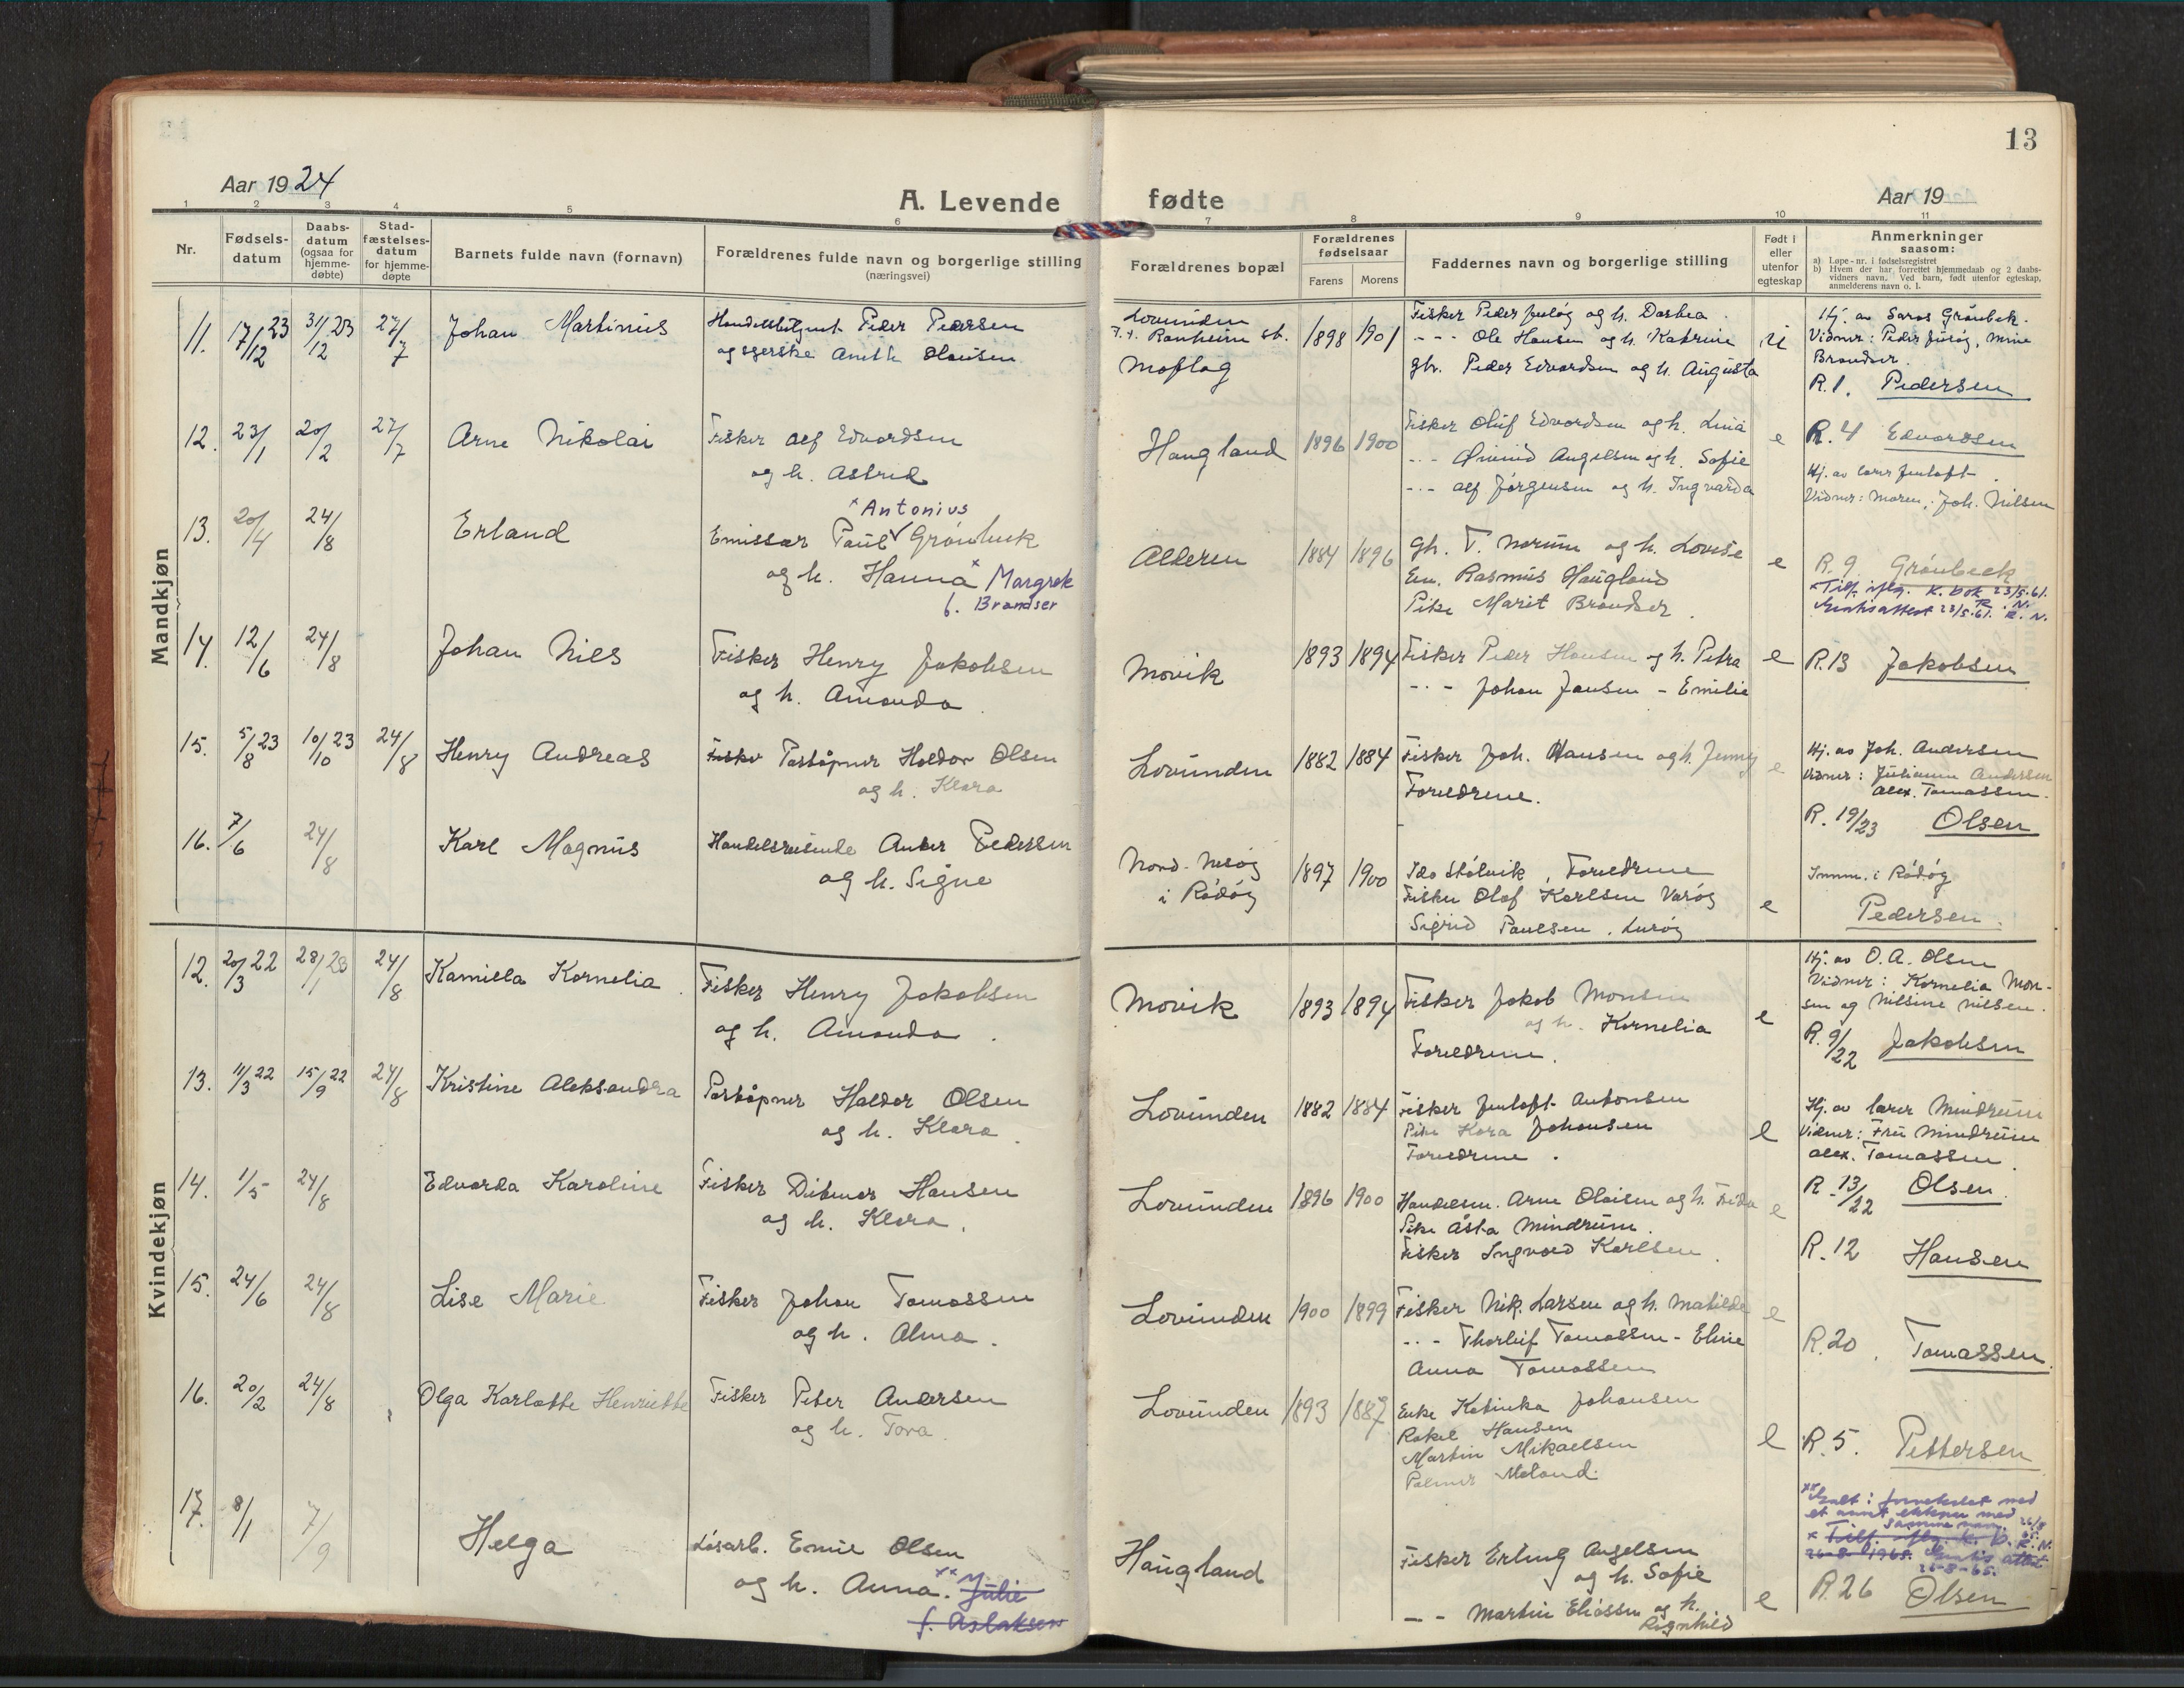 13
Aar 1924
A. Levende fødte
Aar 19
1 2 3 4 5 6 7 8 9 10 11
Nr.
Fødsels-
datum
Daabs-
datum
(ogsaa for
hjemme-
døbte)
Stad-
fæstelses-
datum
for hjemme-
døpte
Barnets fulde navn (fornavn)
Forældrenes fulde navn og borgerlige stilling
(næringsvei)
Forældrenes bopæl
Forældrenes
fødselsaar
Farens Morens
Faddernes navn og borgerlige stilling
Født i
eller
utenfor
egteskap
Anmerkninger
saasom:
a) Løpe-nr. i fødselsregistret
b) Hvem der har forrettet hjemmedaab og 2 daabs-
vidners navn. Ved barn, født utenfor egteskap,
anmelderens navn o. l.
Mandkjøn
11. 17/12 23 31/12 23 27/7 Johan Martinus
Peder Pedersen
Lovunden
Ranheim
1898 1901
Fisker Peder og h. Dorthea
- - - Ole Hansen og h. Katrine
gbr. Peder Edvardsen og h. Augusta
u
Hj. av Grønbek.
Vidner: Peder
R.1. Pedersen
12. 23/1 20/2 27/7 Arne Nikolai
Fisker Alf Edvardsen
og h. Astrid
Haugland 1896 1900
Fisker Oluf Edvardsen og h. Lina
- - Øivind Angelsen og h. Sofie
- - Alf Jørgensen og h. Ingvarda
e
R.4 Edvardsen
Hj. av lærer Jentoft
Vidner: Moren, Joh. Nilsen
13. 20/4 24/8 Erland
x Antonius
Emissær Paul Grønbeck
og h. Hanna x Margrete
f. Brandser
Alderen 1884 1896
Gh. T. Norum og h. Lovise
Em. Rasmus Haugland
Pike Marit Brandser
e
R.9 Grønbeck
x Tilf. iflg. K. bok 23/5.61.
23/5.61. R. N.
14. 12/6 24/8 Johan Nils
Fisker Henry Jakobsen
og h. Amanda
Movik 1893 1894
Fisker Peder Hansen og h. Petra
- - Johan Jansen - Emilie
e
R.13 Jakobsen
15. 5/8 23 10/10 23 24/8 Henry Andreas
Fisker Poståpner Haldor Olsen
og h. Klara
Lovunden 1882 1884
Fisker Joh. Hansen og h. Jenny
Foreldrene.
e
Hj. av Joh. Andersen
Vidner: Julianne Andersen
Alex. Tomassen.
R. 19/23 Olsen
16. 7/6 24/8 Karl Magnus
Handelsreisende Anker Pedersen
og h. Signe
Nord-Nesøy
i Rødøy
1897 1900
Ida Stølvik, Foreldrene
Fisker Olaf Karlsen Varøy
Sigrid Paulsen, Lurøy
e
Innm. i Rødøy
Pedersen.
Kvindekjøn
12. 20/3 22 28/1 23 24/8 Kamilla Kornelia
Fisker Henry Jakobsen
og h. Amanda
Movik 1893 1894
Fisker Jakob Monsen
og h. Kornelia
Foreldrene.
e
Hj. av O. A. Olsen
Vidner: Kornelia Mon-
sen og Nilsine Nilsen.
R. 9/22 Jakobsen
13. 11/3 22 15/9 22 24/8 Kristine Aleksandra
Poståpner Haldor Olsen
og h. Klara.
Lovunden 1882 1884
Fisker Jentoft Antonsen
Pike Kora Johansen
Foreldrene.
e
Hj. av lærer Mindrum
Vidner: Fru Mindrum
Alex. Tomassen.
R. 13/22 Olsen.
14. 1/5 24/8 Edvarda Karoline
Fisker Ditmar Hansen
og h. Klara.
Lovunden 1896 1900
Handelsm. Arne Olaisen og h. Frida
Pike Åsta Mindrum.
Fisker Ingvald Karlsen
e
R.12 Hansen
15. 24/6 24/8 Lise Marie
Fisker Johan Tomassen
og h. Alma.
Lovunden 1900 1899
Fisker Nik. Larsen og h. Matilde
- - Thorleif Tomassen - Eline
Anna Tomassen
e
R.20. Tomassen.
16. 20/2 24/8 Olga Karlotte Henriette
Fisker Peter Andersen
og h. Tora.
Lovunden 1893 1887
Enke Katinka Johansen
Rakel Hansen
Martin Mikaelsen
Palmer Meland.
e
R.5. Pettersen
17. 8/1 7/9 Helga
Løsarb. Emil Olsen
og h. Anna. xx Julie
f. Aslaksen
Haugland
Fisker Erling Angelsen
og h. Sofie
- - Martin Eliassen og h.
Ragnhild
e
xx Galt: forvekslet med
et annet ektepar med
samme navn. 26/8
65.
x Tilf. iflg. K. b. R. N.
26-8-1965. attest
26-8-65.
R.26 Olsen